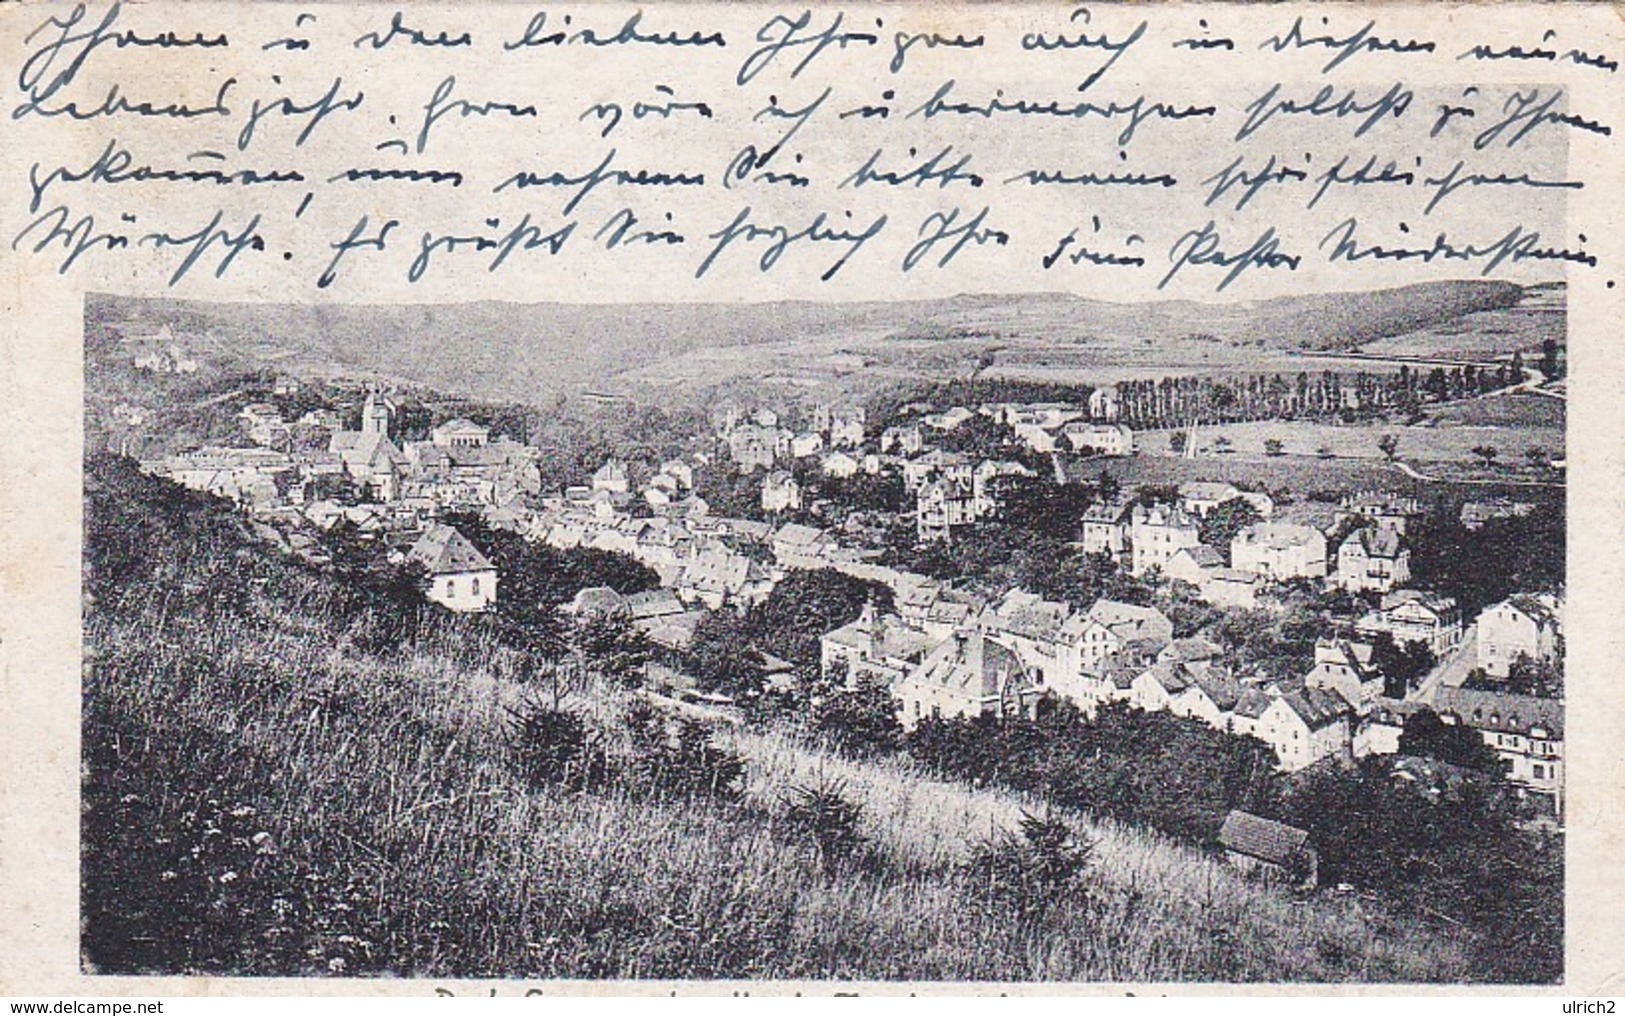 Ihnen u den lieben Ihrigen auch in diesem neuen
Lebensjahr. Gern wäre ich übermorgen selbst zu Ihnen
gekommen, nun nehmen Sie bitte meine schriftlichen
Wünsche! Es grüßt Sie herzlich Ihre Frau Pastor Niederstein.
ulrich2